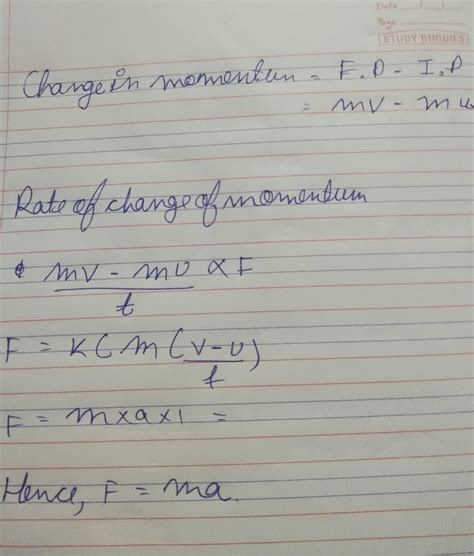 Date
Page
STUDY BUDDIES
Change in momentum = F.P - I.P
= mv - mu
Rate of change of momentum
mv - mu ∝ F
t
F = K ( m (v-u)
t
F = m x a x 1 =
Hence, F = ma.